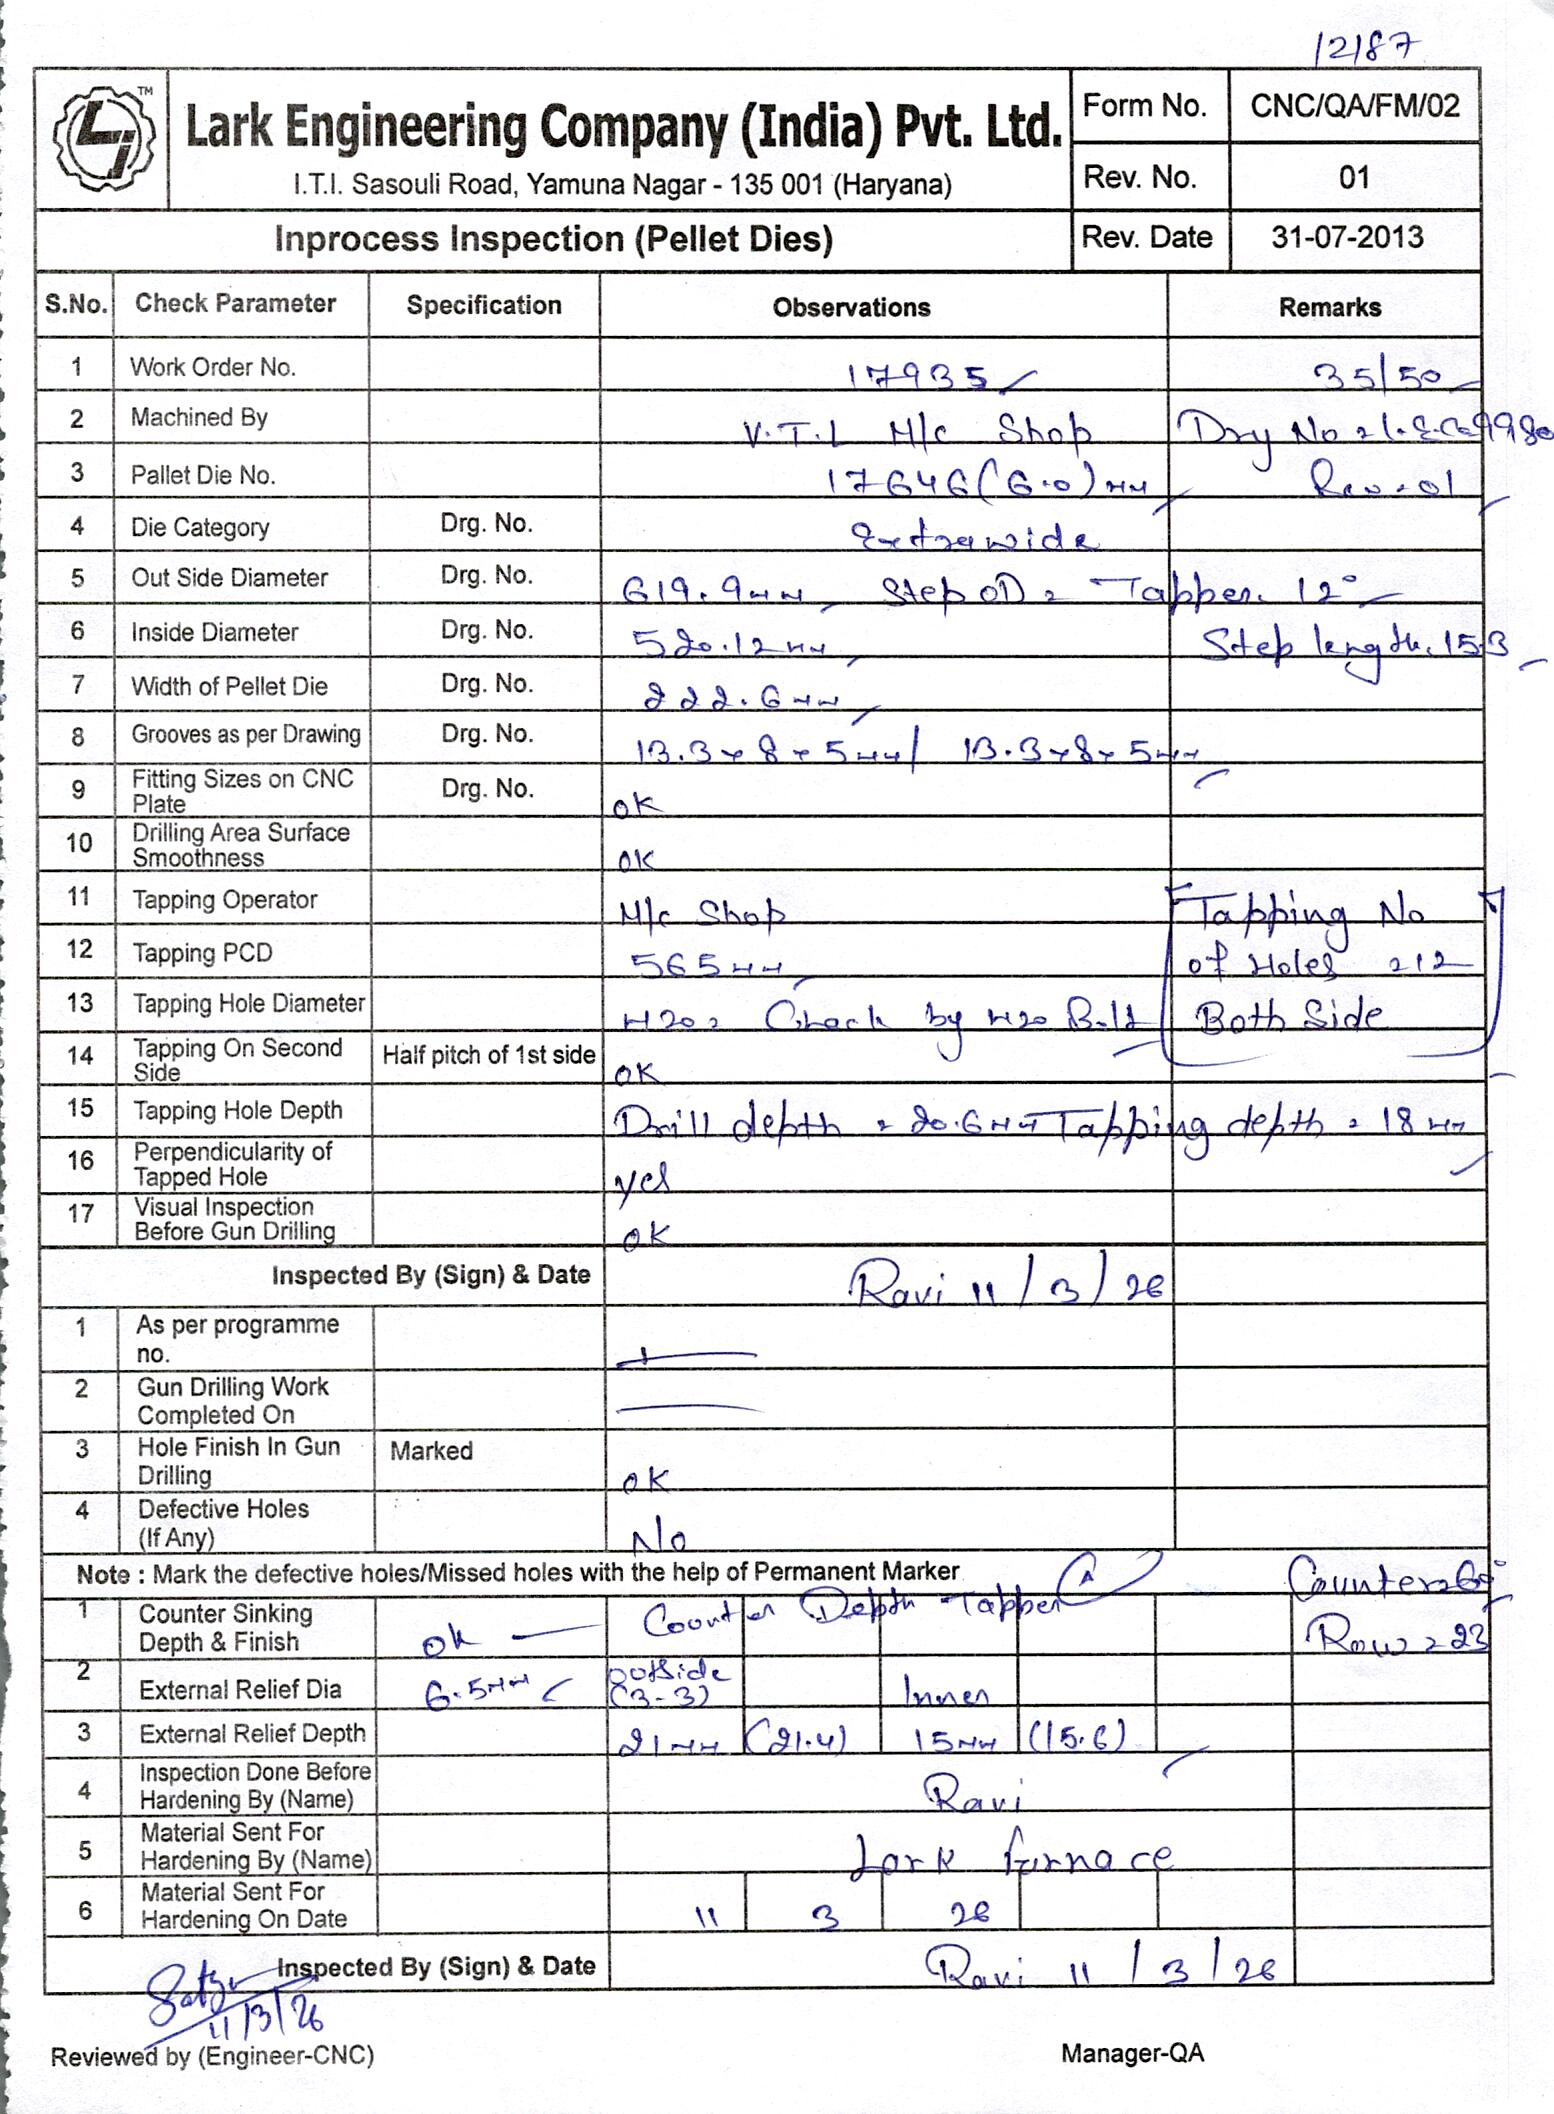 12187
TM
Lark Engineering Company (India) Pvt. Ltd.
I.T.I. Sasouli Road, Yamuna Nagar - 135 001 (Haryana)
Form No. CNC/QA/FM/02
Rev. No. 01
Inprocess Inspection (Pellet Dies)
Rev. Date 31-07-2013
S.No. Check Parameter Specification Observations Remarks
1 Work Order No. 17935 35/50
2 Machined By V.T.L M/c Shop Drg No
3 Pallet Die No. 17646 (6.0) mm Rev-01
4 Die Category Drg. No. Extrawide
5 Out Side Diameter Drg. No. 619.9mm Step OD = Tapper. 12°
6 Inside Diameter Drg. No. 520.12mm Step length. 15.3
7 Width of Pellet Die Drg. No. 222.6mm
8 Grooves as per Drawing Drg. No. 13.3x8x5mm/ 13.3x8x5mm
9 Fitting Sizes on CNC Plate Drg. No. OK
10 Drilling Area Surface Smoothness OK
11 Tapping Operator M/c Shop Tapping No
12 Tapping PCD 565mm of Holes =12
13 Tapping Hole Diameter M20= Check by M20 Bolt Both Side
14 Tapping On Second Side Half pitch of 1st side OK
15 Tapping Hole Depth Drill depth = 20.6mm Tapping depth = 18mm
16 Perpendicularity of Tapped Hole yes
17 Visual Inspection Before Gun Drilling OK
Inspected By (Sign) & Date Ravi 11/3/26
1 As per programme no.
2 Gun Drilling Work Completed On
3 Hole Finish In Gun Drilling Marked OK
4 Defective Holes (If Any) No
Note : Mark the defective holes/Missed holes with the help of Permanent Marker
1 Counter Sinking Depth & Finish ok Counter Depth Tapper A Row = 23
2 External Relief Dia 6.5mm outside (3-3) Inner
3 External Relief Depth 21mm (21.4) 15mm (15.6)
4 Inspection Done Before Hardening By (Name) Ravi
5 Material Sent For Hardening By (Name) Lark furnace
6 Material Sent For Hardening On Date 11 3 26
Inspected By (Sign) & Date Ravi 11/3/26
11/3/26
Reviewed by (Engineer-CNC) Manager-QA